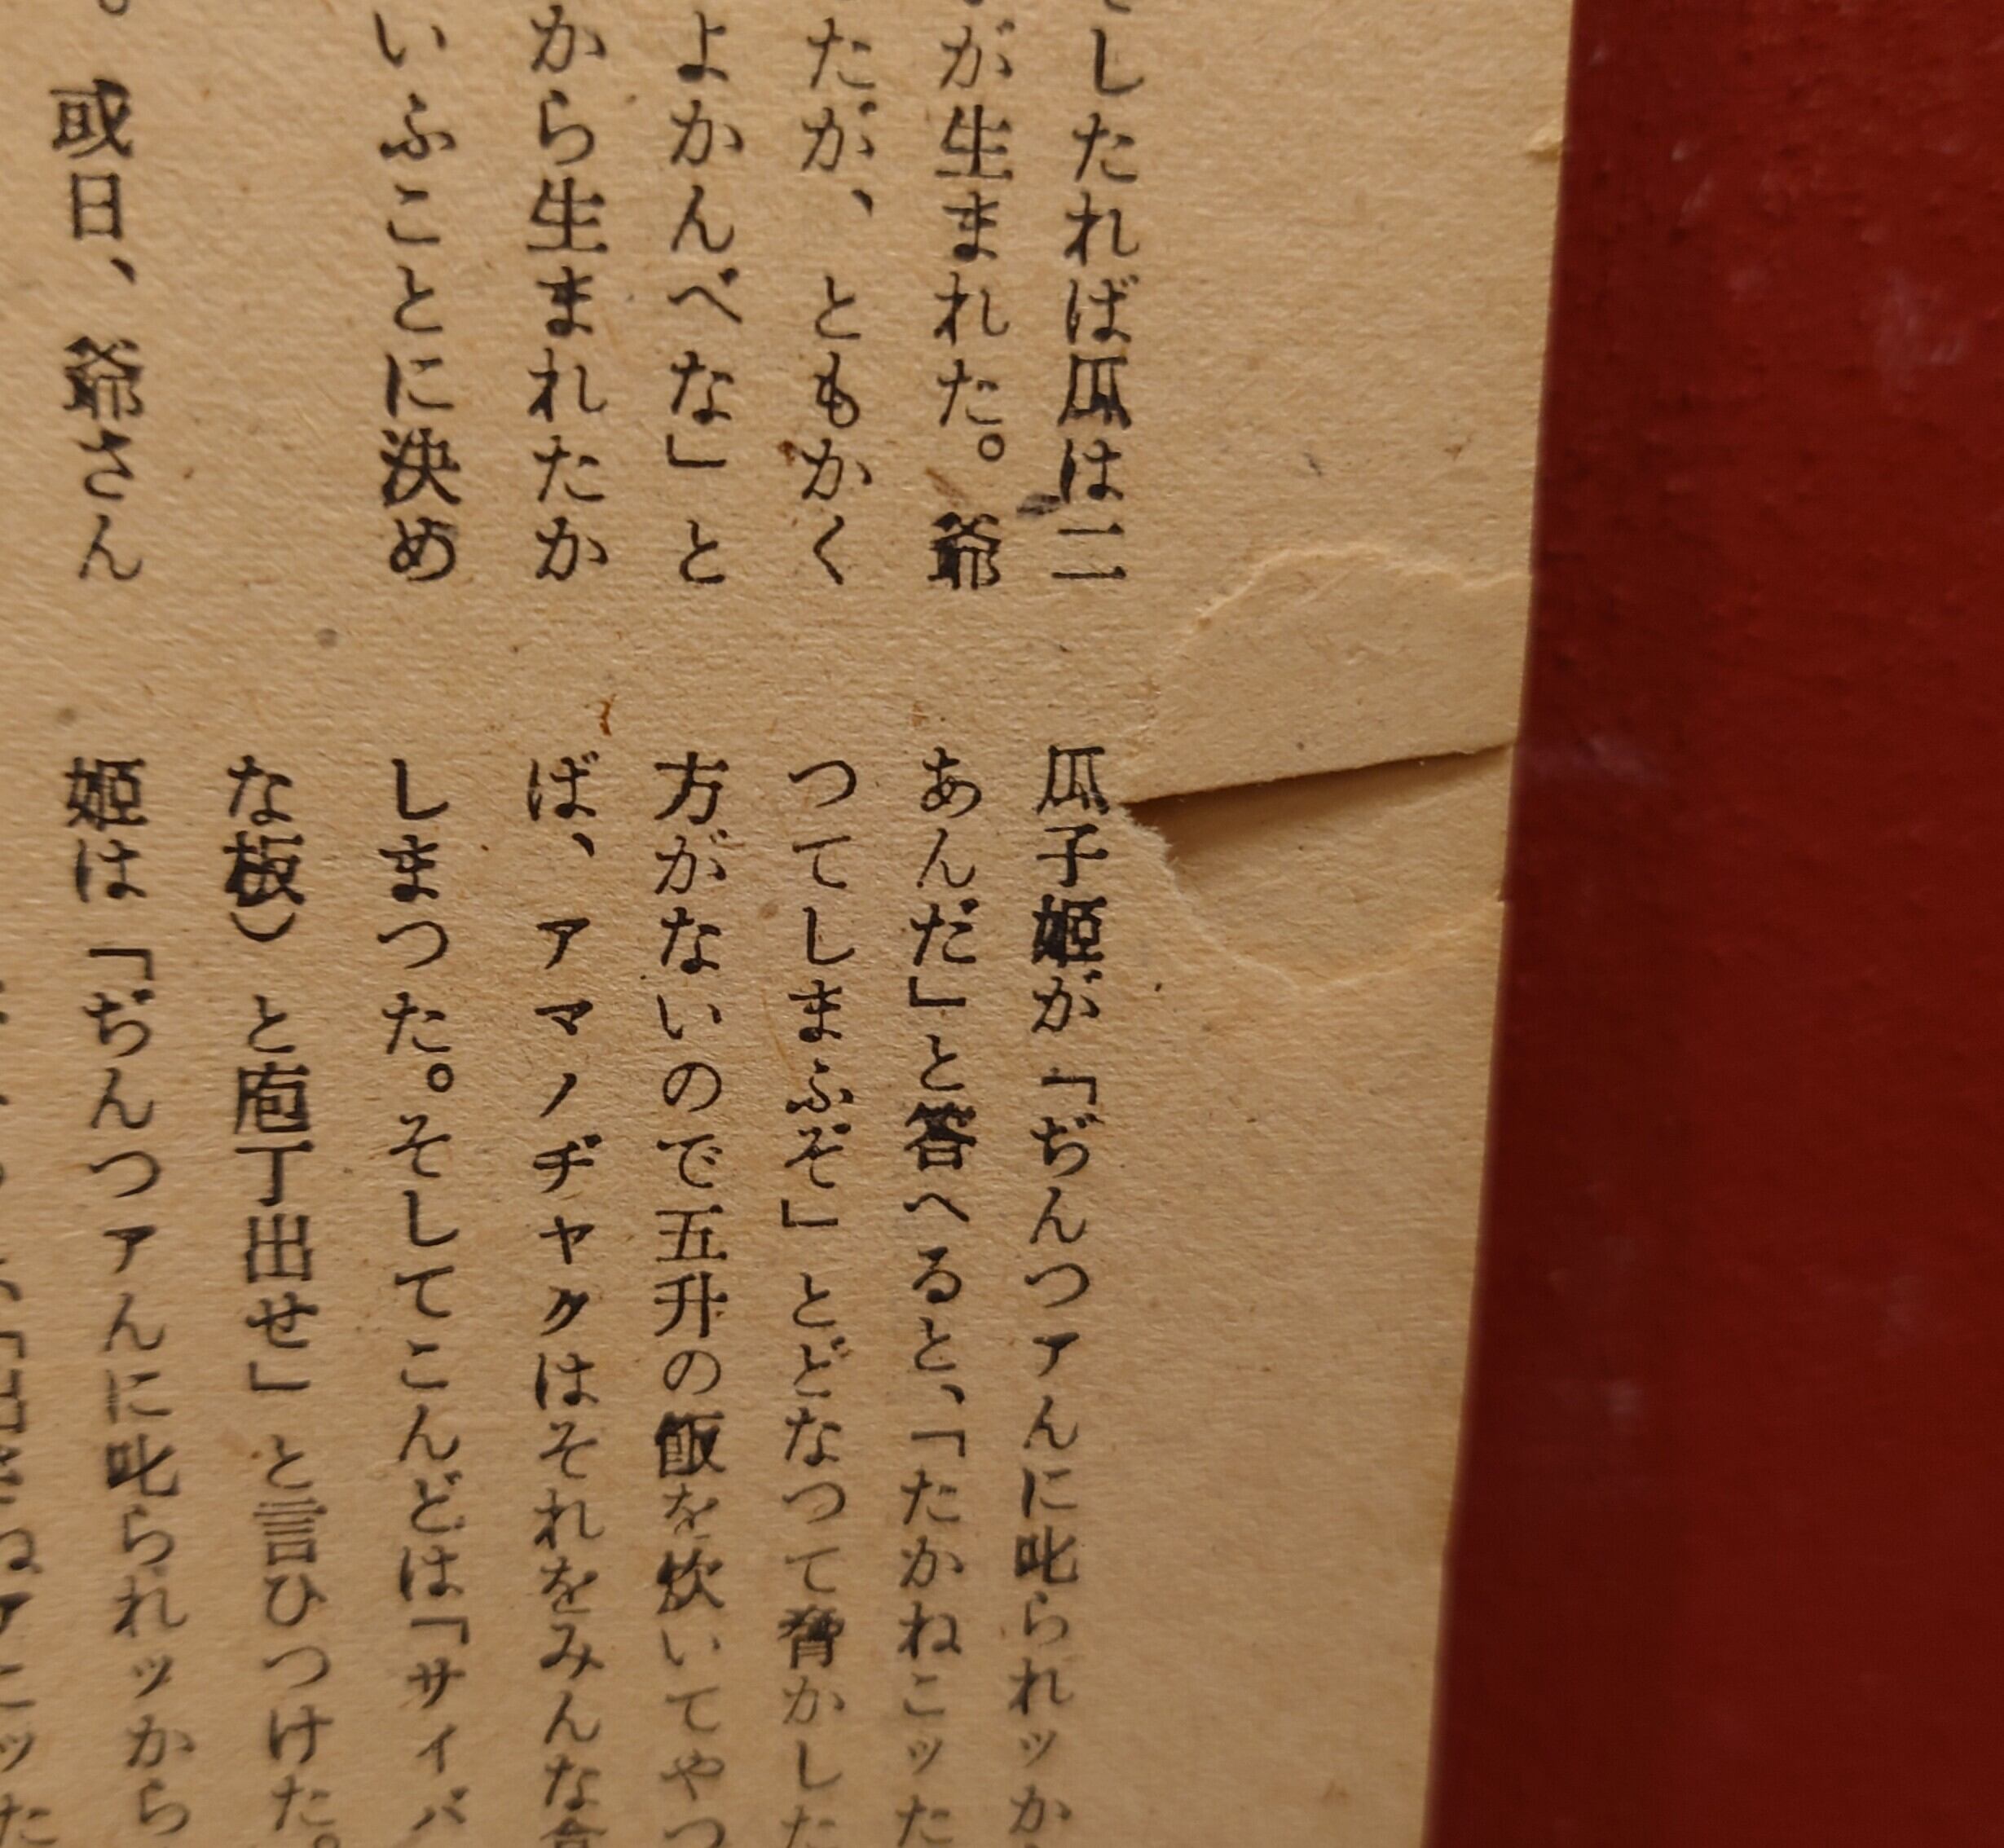 したれば瓜は二
が生まれた。爺
たが、ともかく
よかんべな」と
から生まれたか
いふことに決め
。或日、爺さん
瓜子姫が「ぢんつアんに叱られッか
あんだ」と答へると、「たかねこッた
つてしまふぞ」とどなつて脅かした
方がないので五升の飯を炊いてやつ
ば、アマノヂヤクはそれをみんな
しまつた。そしてこんどは「サイバ
な板）と庖丁出せ」と言ひつけた。
姫は「ぢんつアんに叱られッから